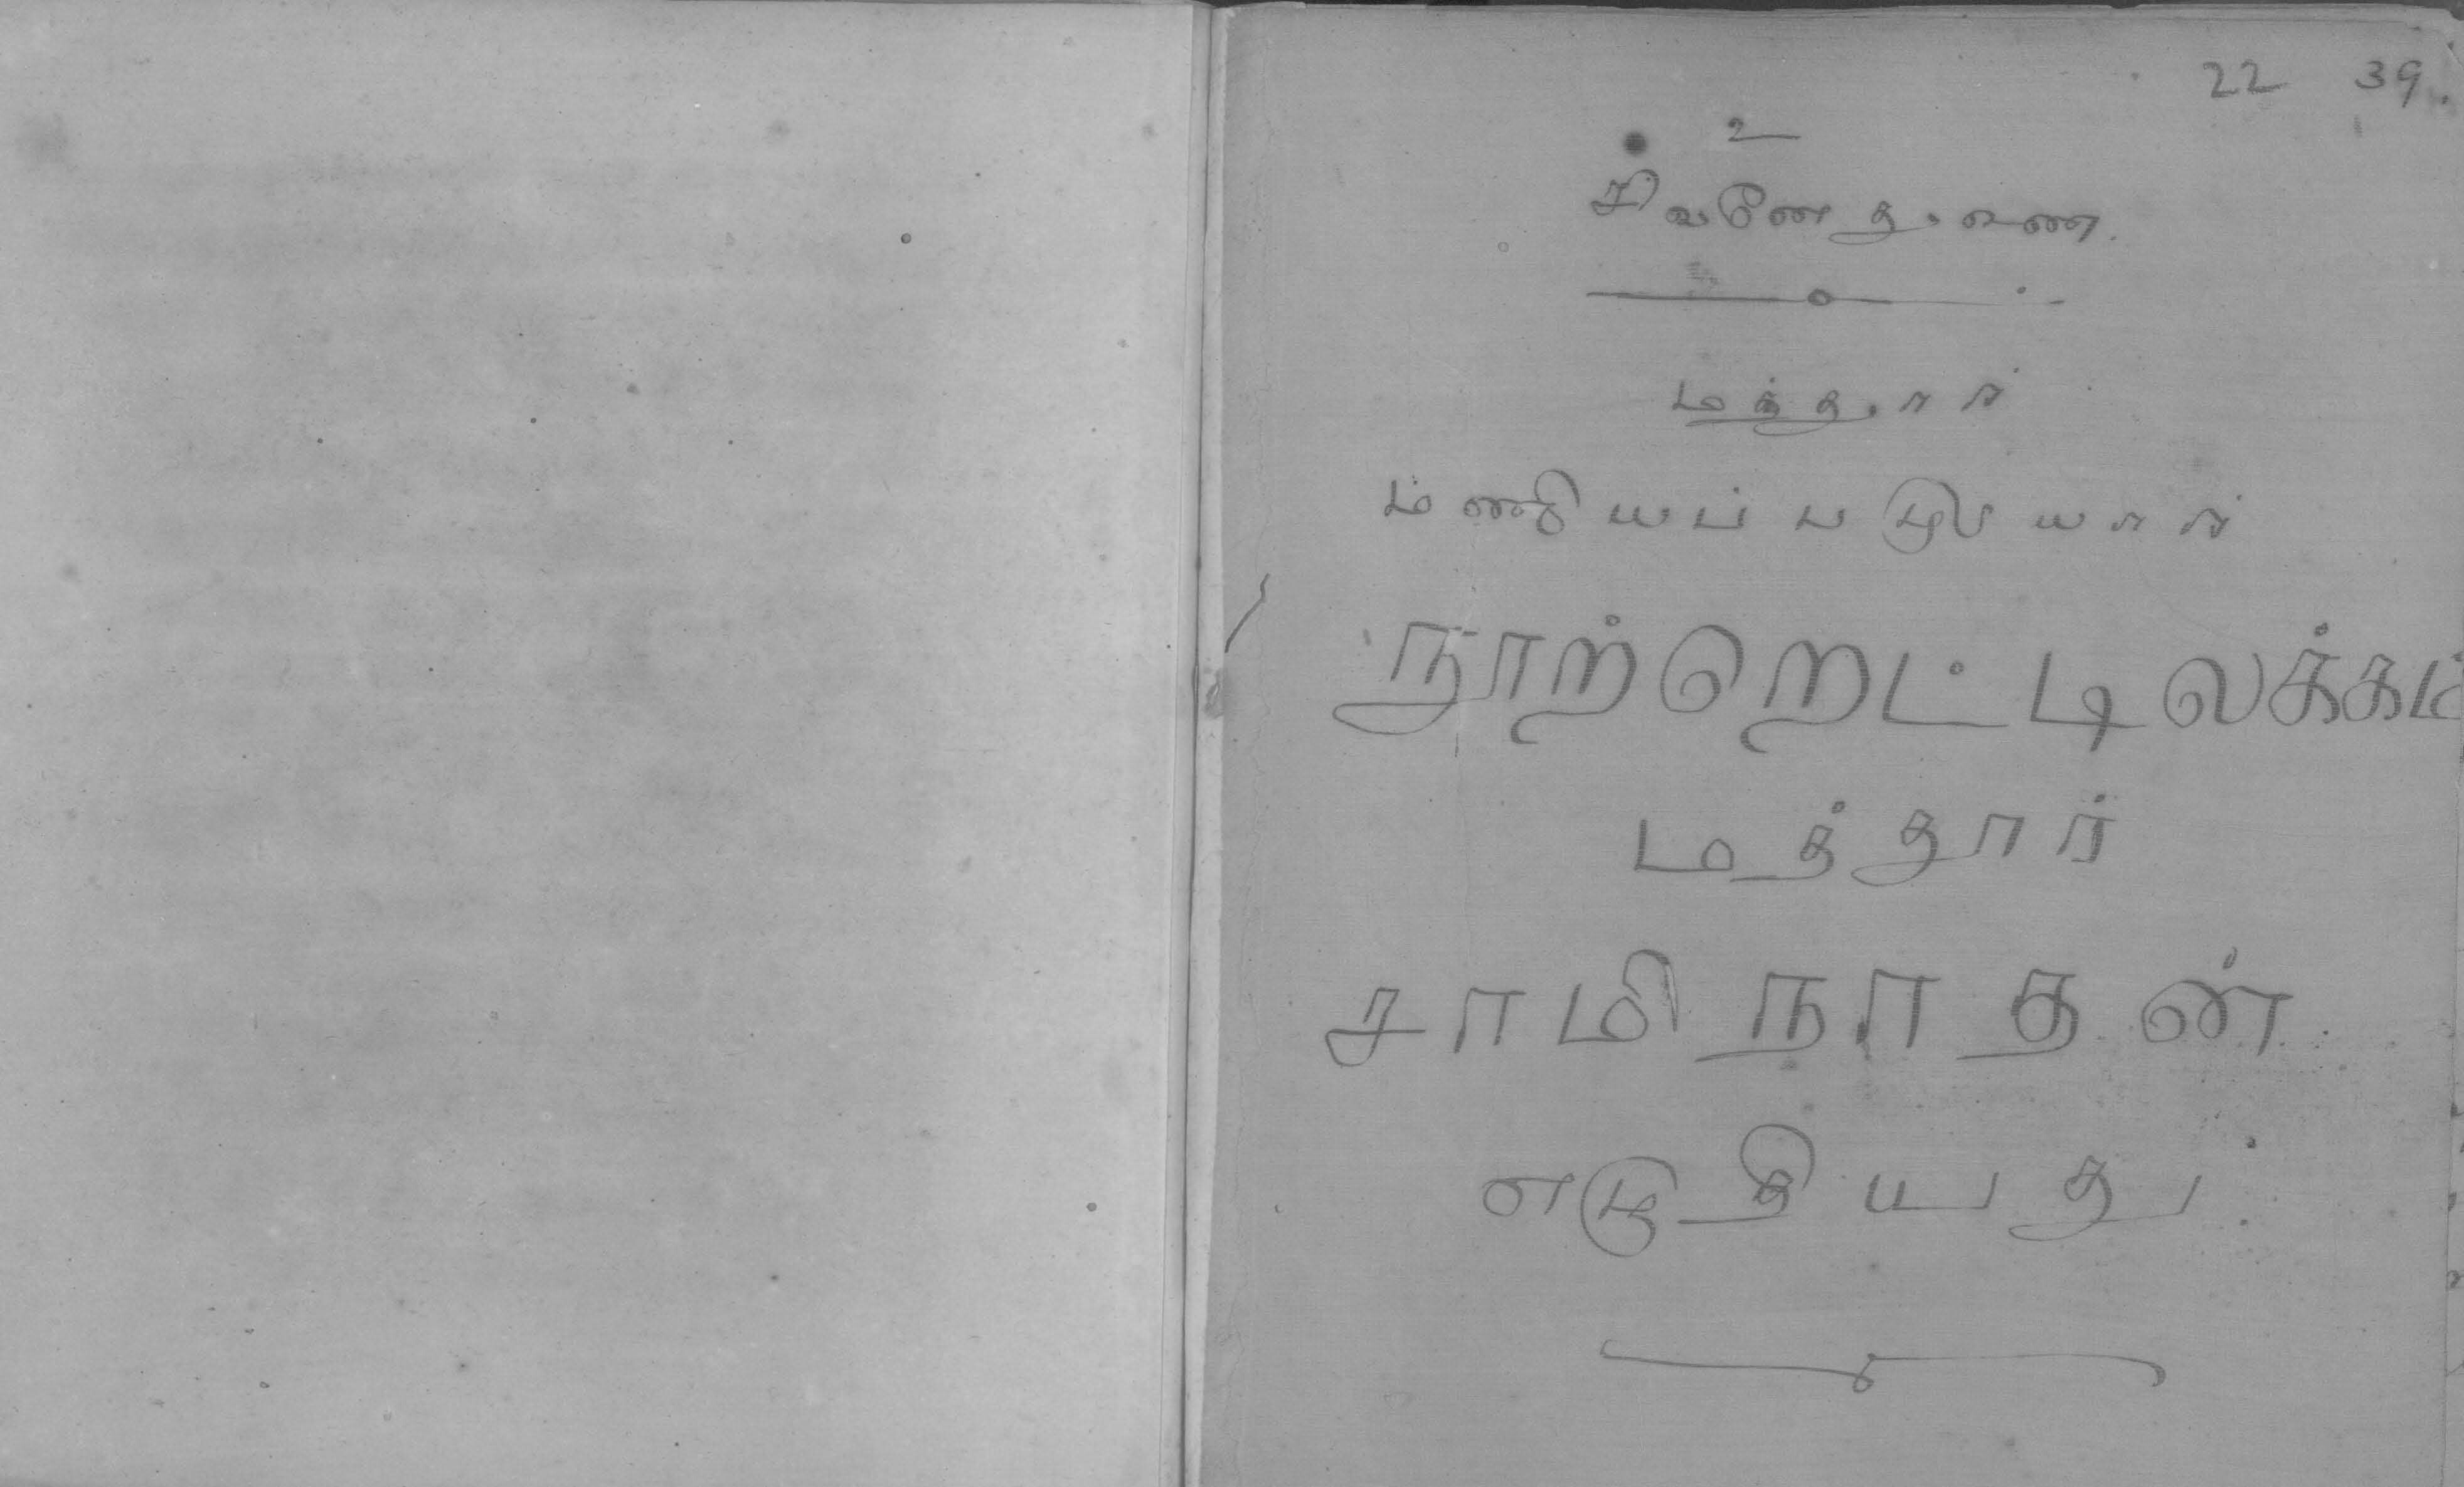 22 39.
உ
சிவனேதுணை.
மத்தார்
மணியப்படியார்
நூற்றெட்டிலக்கம்
மத்தார்
சாமிநாதன்
எழுதியது